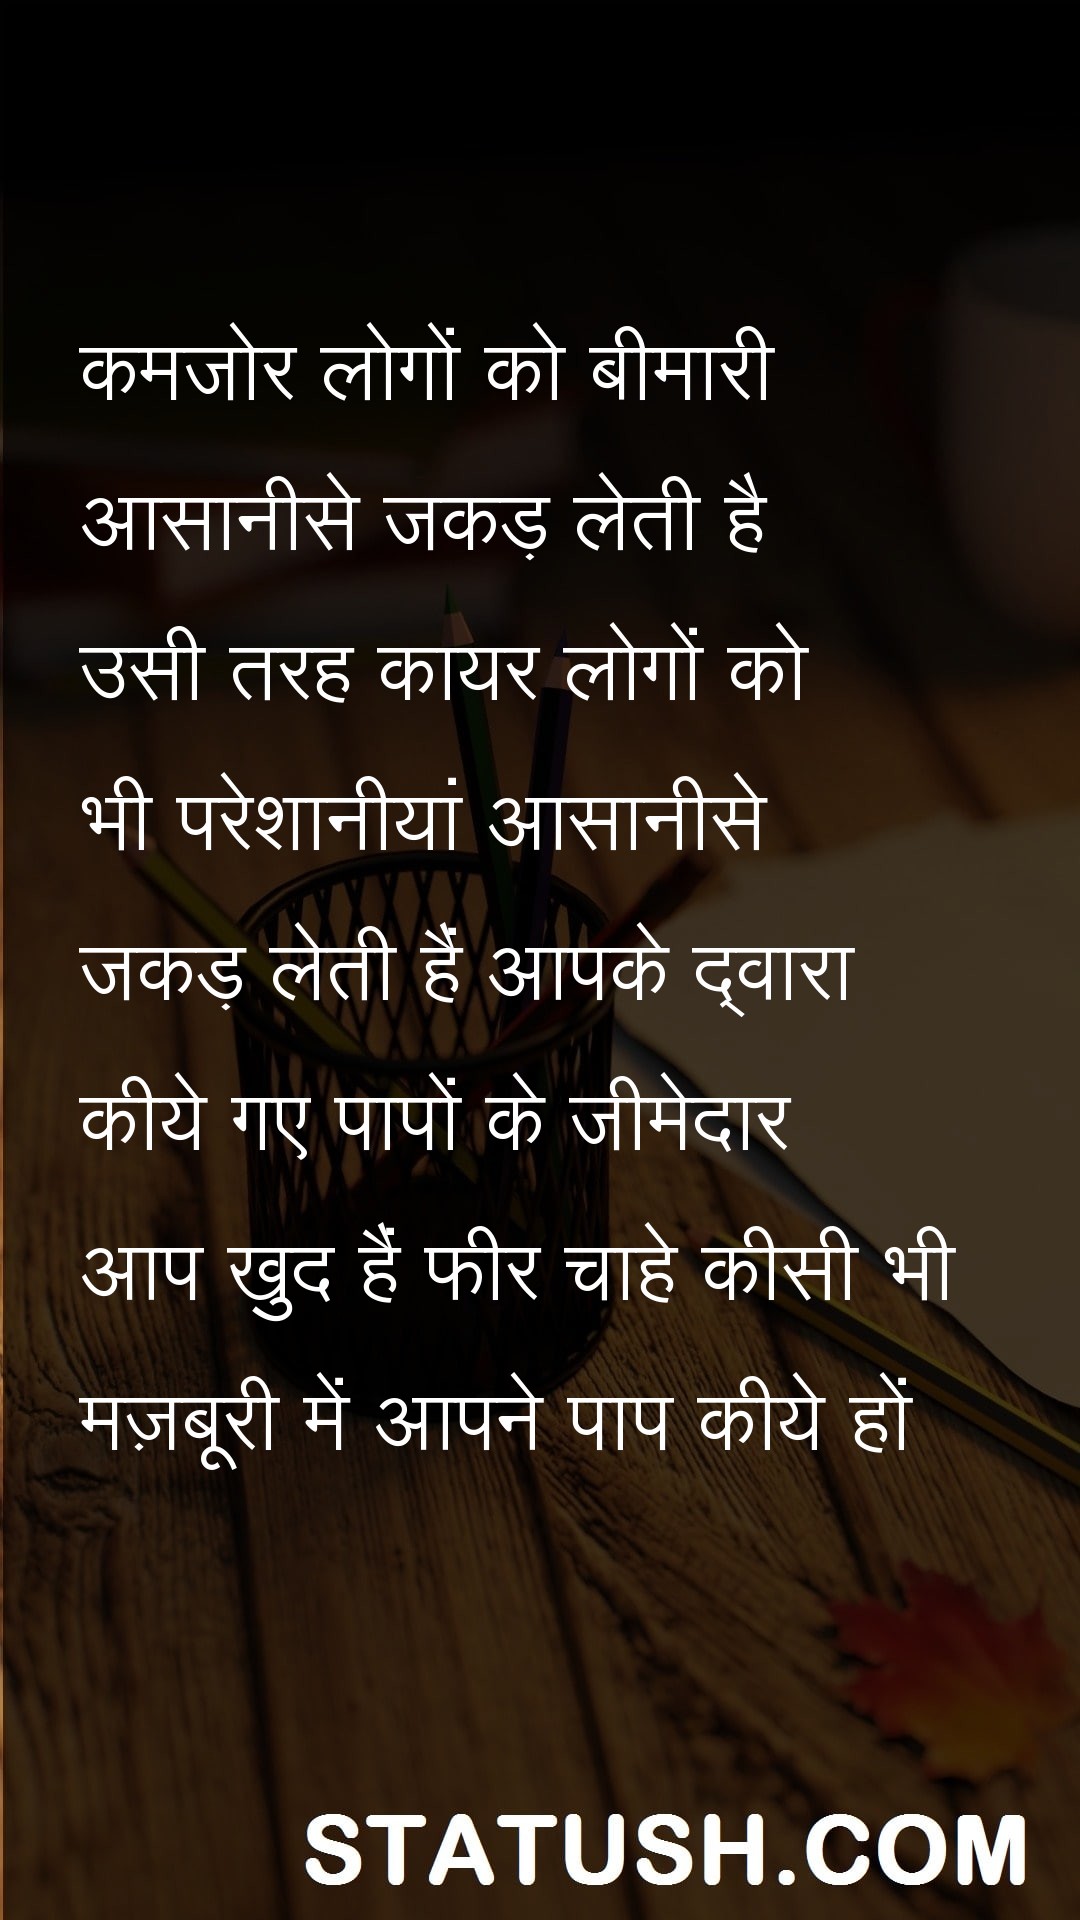 कमजोर लोगों को बीमारी
आसानीसे जकड़ लेती है
उसी तरह कायर लोगों को
भी परेशानीयां आसानीसे
जकड़ लेती हैं आपके द्वारा
कीये गए पापों के जीमेदार
आप खुद हैं फीर चाहे कीसी भी
मज़बूरी में आपने पाप कीये हों
STATUSH.COM